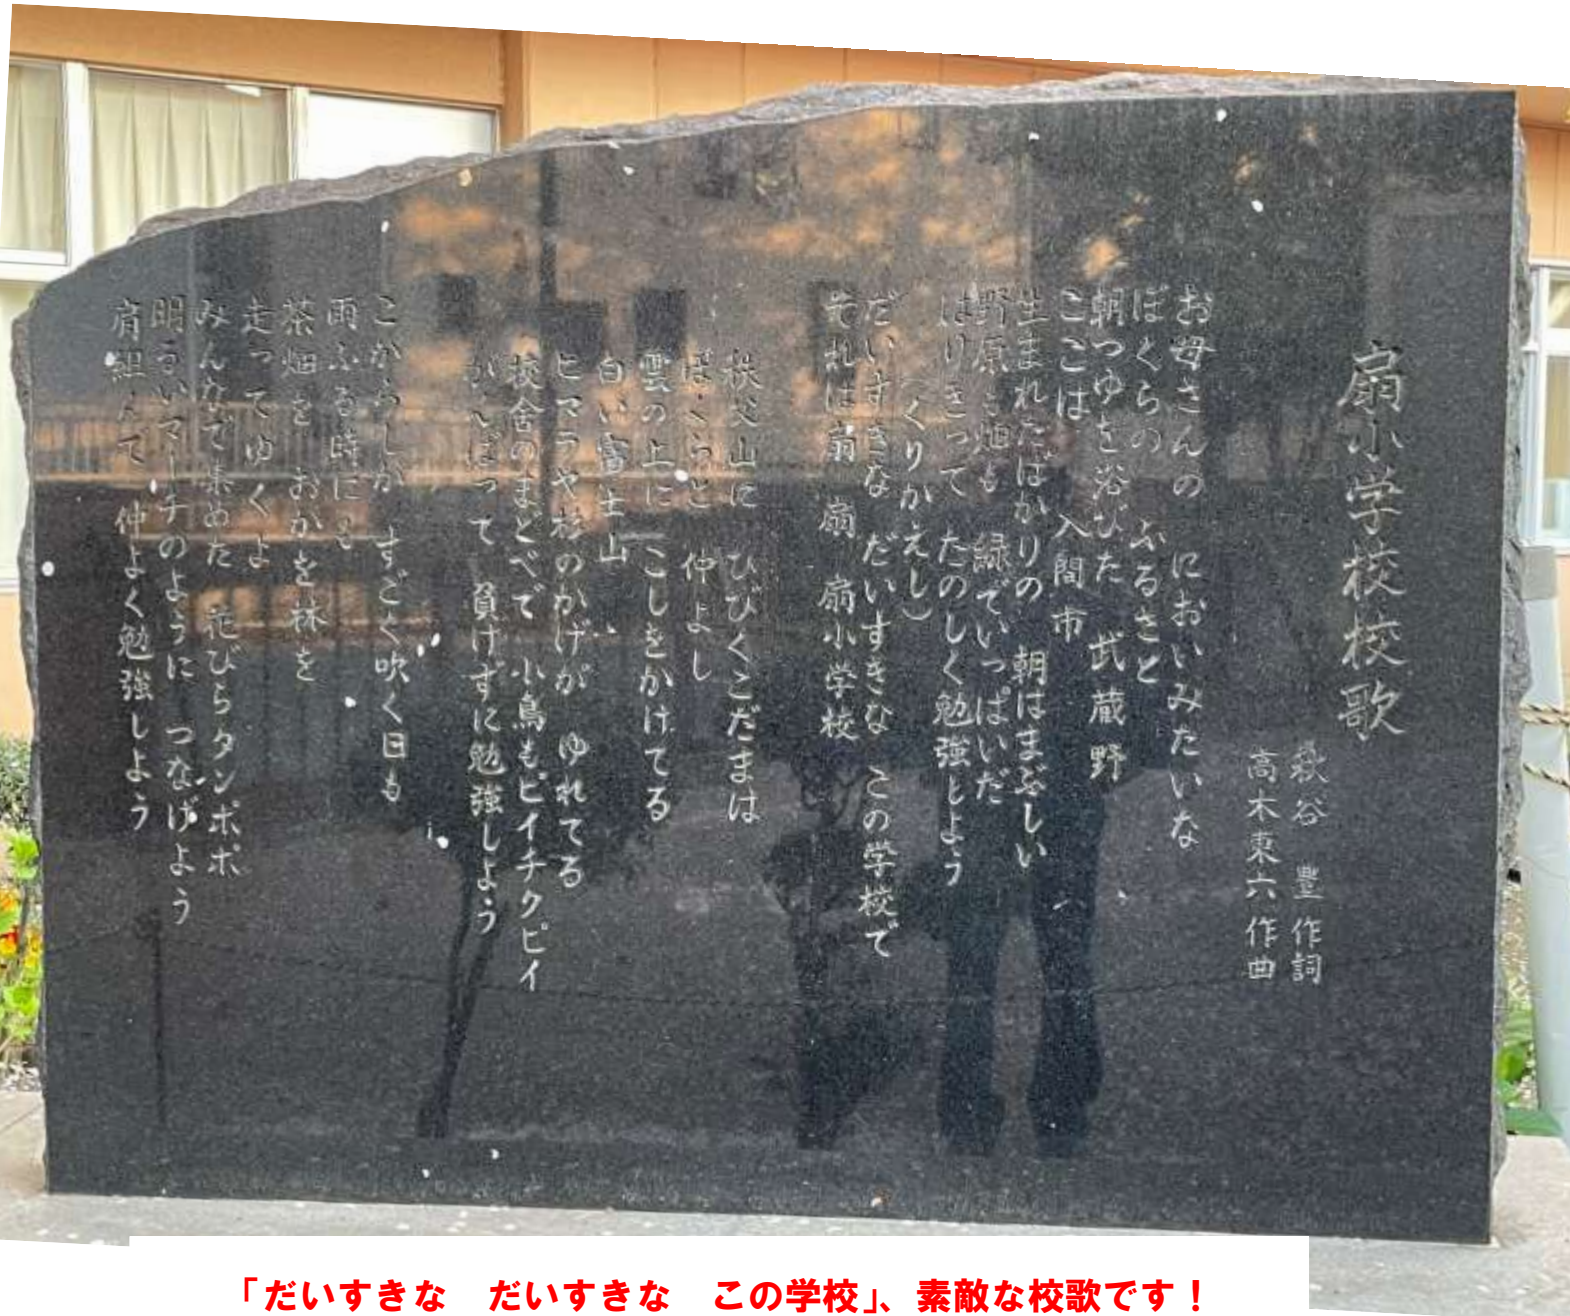 扇小学校校歌
萩谷 豊 作詞
高木東六 作曲
お母さんの においみたいな
ぼくらの ふるさと
朝つゆを浴びた 武蔵野
ここは 入間市
生まれたばかりの 朝はまぶしい
野原も畑も 緑でいっぱいだ
はりきって たのしく勉強しよう
(くりかえし)
だいすきな だいすきな この学校で
それは扇 扇 扇小学校
秩父山に ひびくこだまは
ぼくらと 仲よし
雲の上に こしをかけてる
白い富士山
ヒマラヤ杉のかげが ゆれてる
校舎のまどべで 小鳥もピイチクピイ
がんばって 負けずに勉強しよう
こがらしが すごく吹く日も
雨ふる時にも
茶畑を おかを林を
走ってゆくよ
みんなで集めた 花びらタンポポ
明るいマーチのように つなげよう
肩組んで 仲よく勉強しよう
「だいすきな だいすきな この学校」、素敵な校歌です！